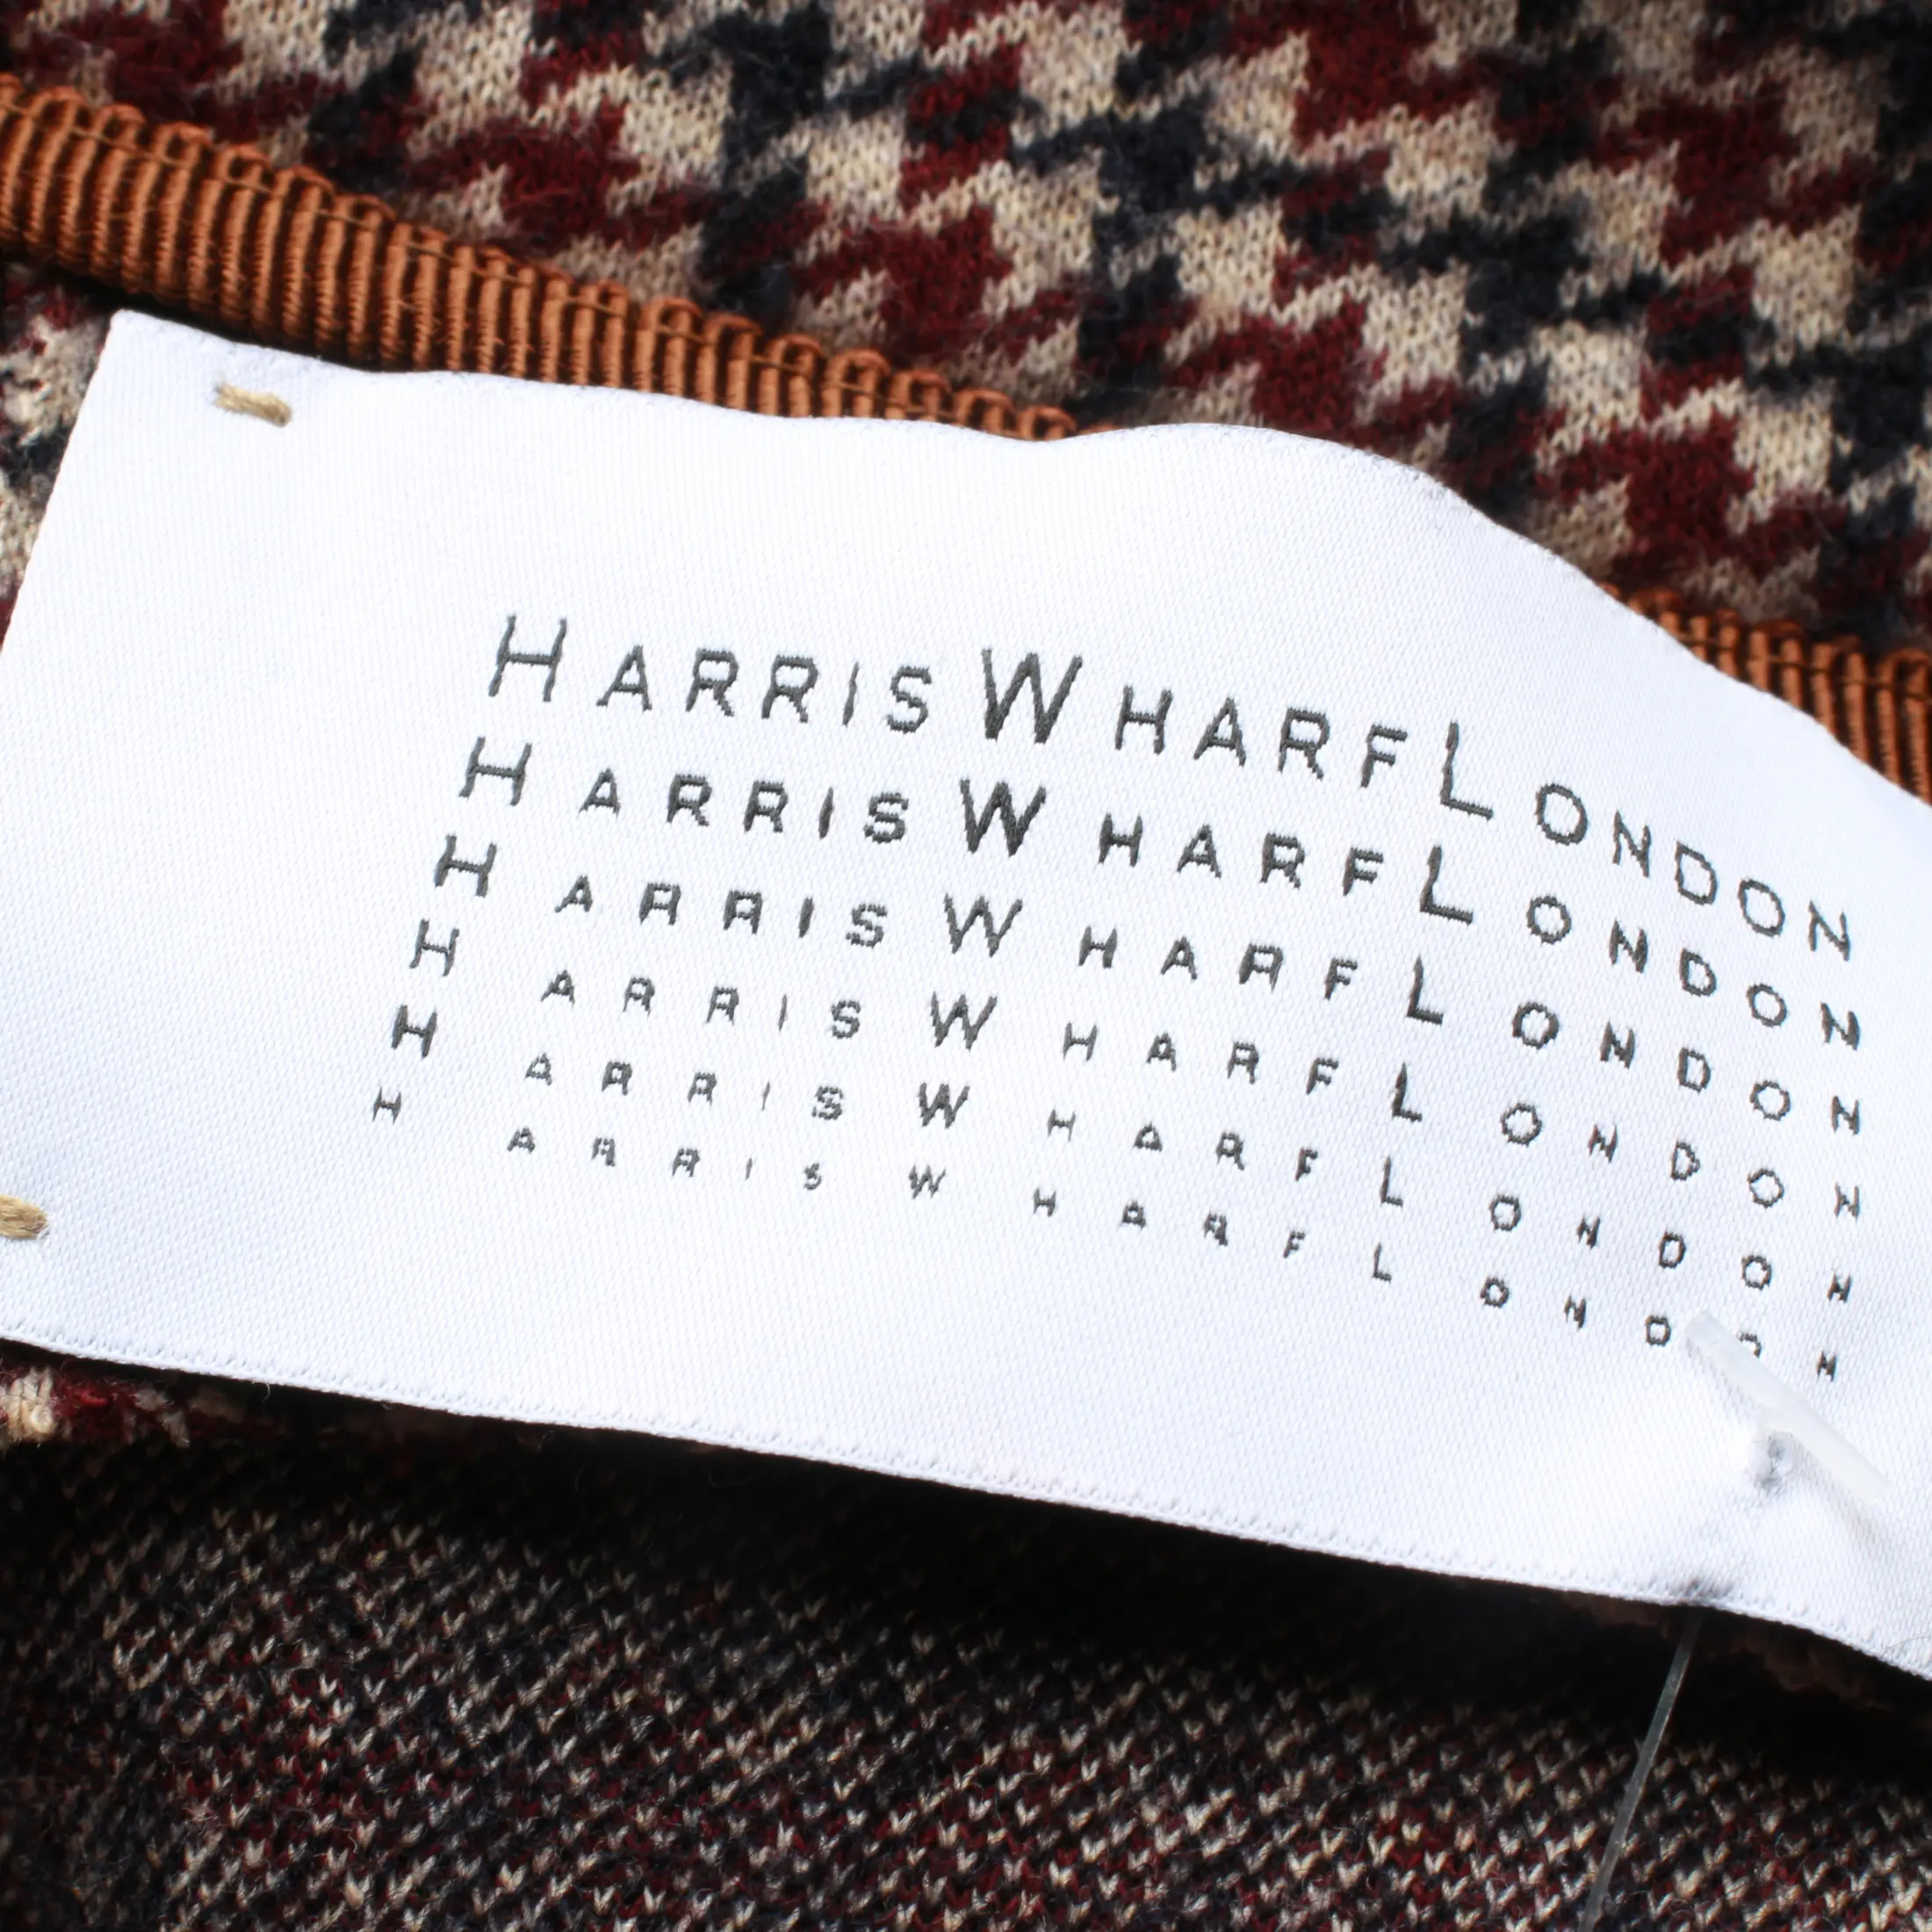 HARRISWHARFLONDON
HARRISWHARFLONDON
HARRISWHARFLONDON
HARRISWHARFLONDON
HARRISWHARFLONDON
HARRISWHARFLONDON